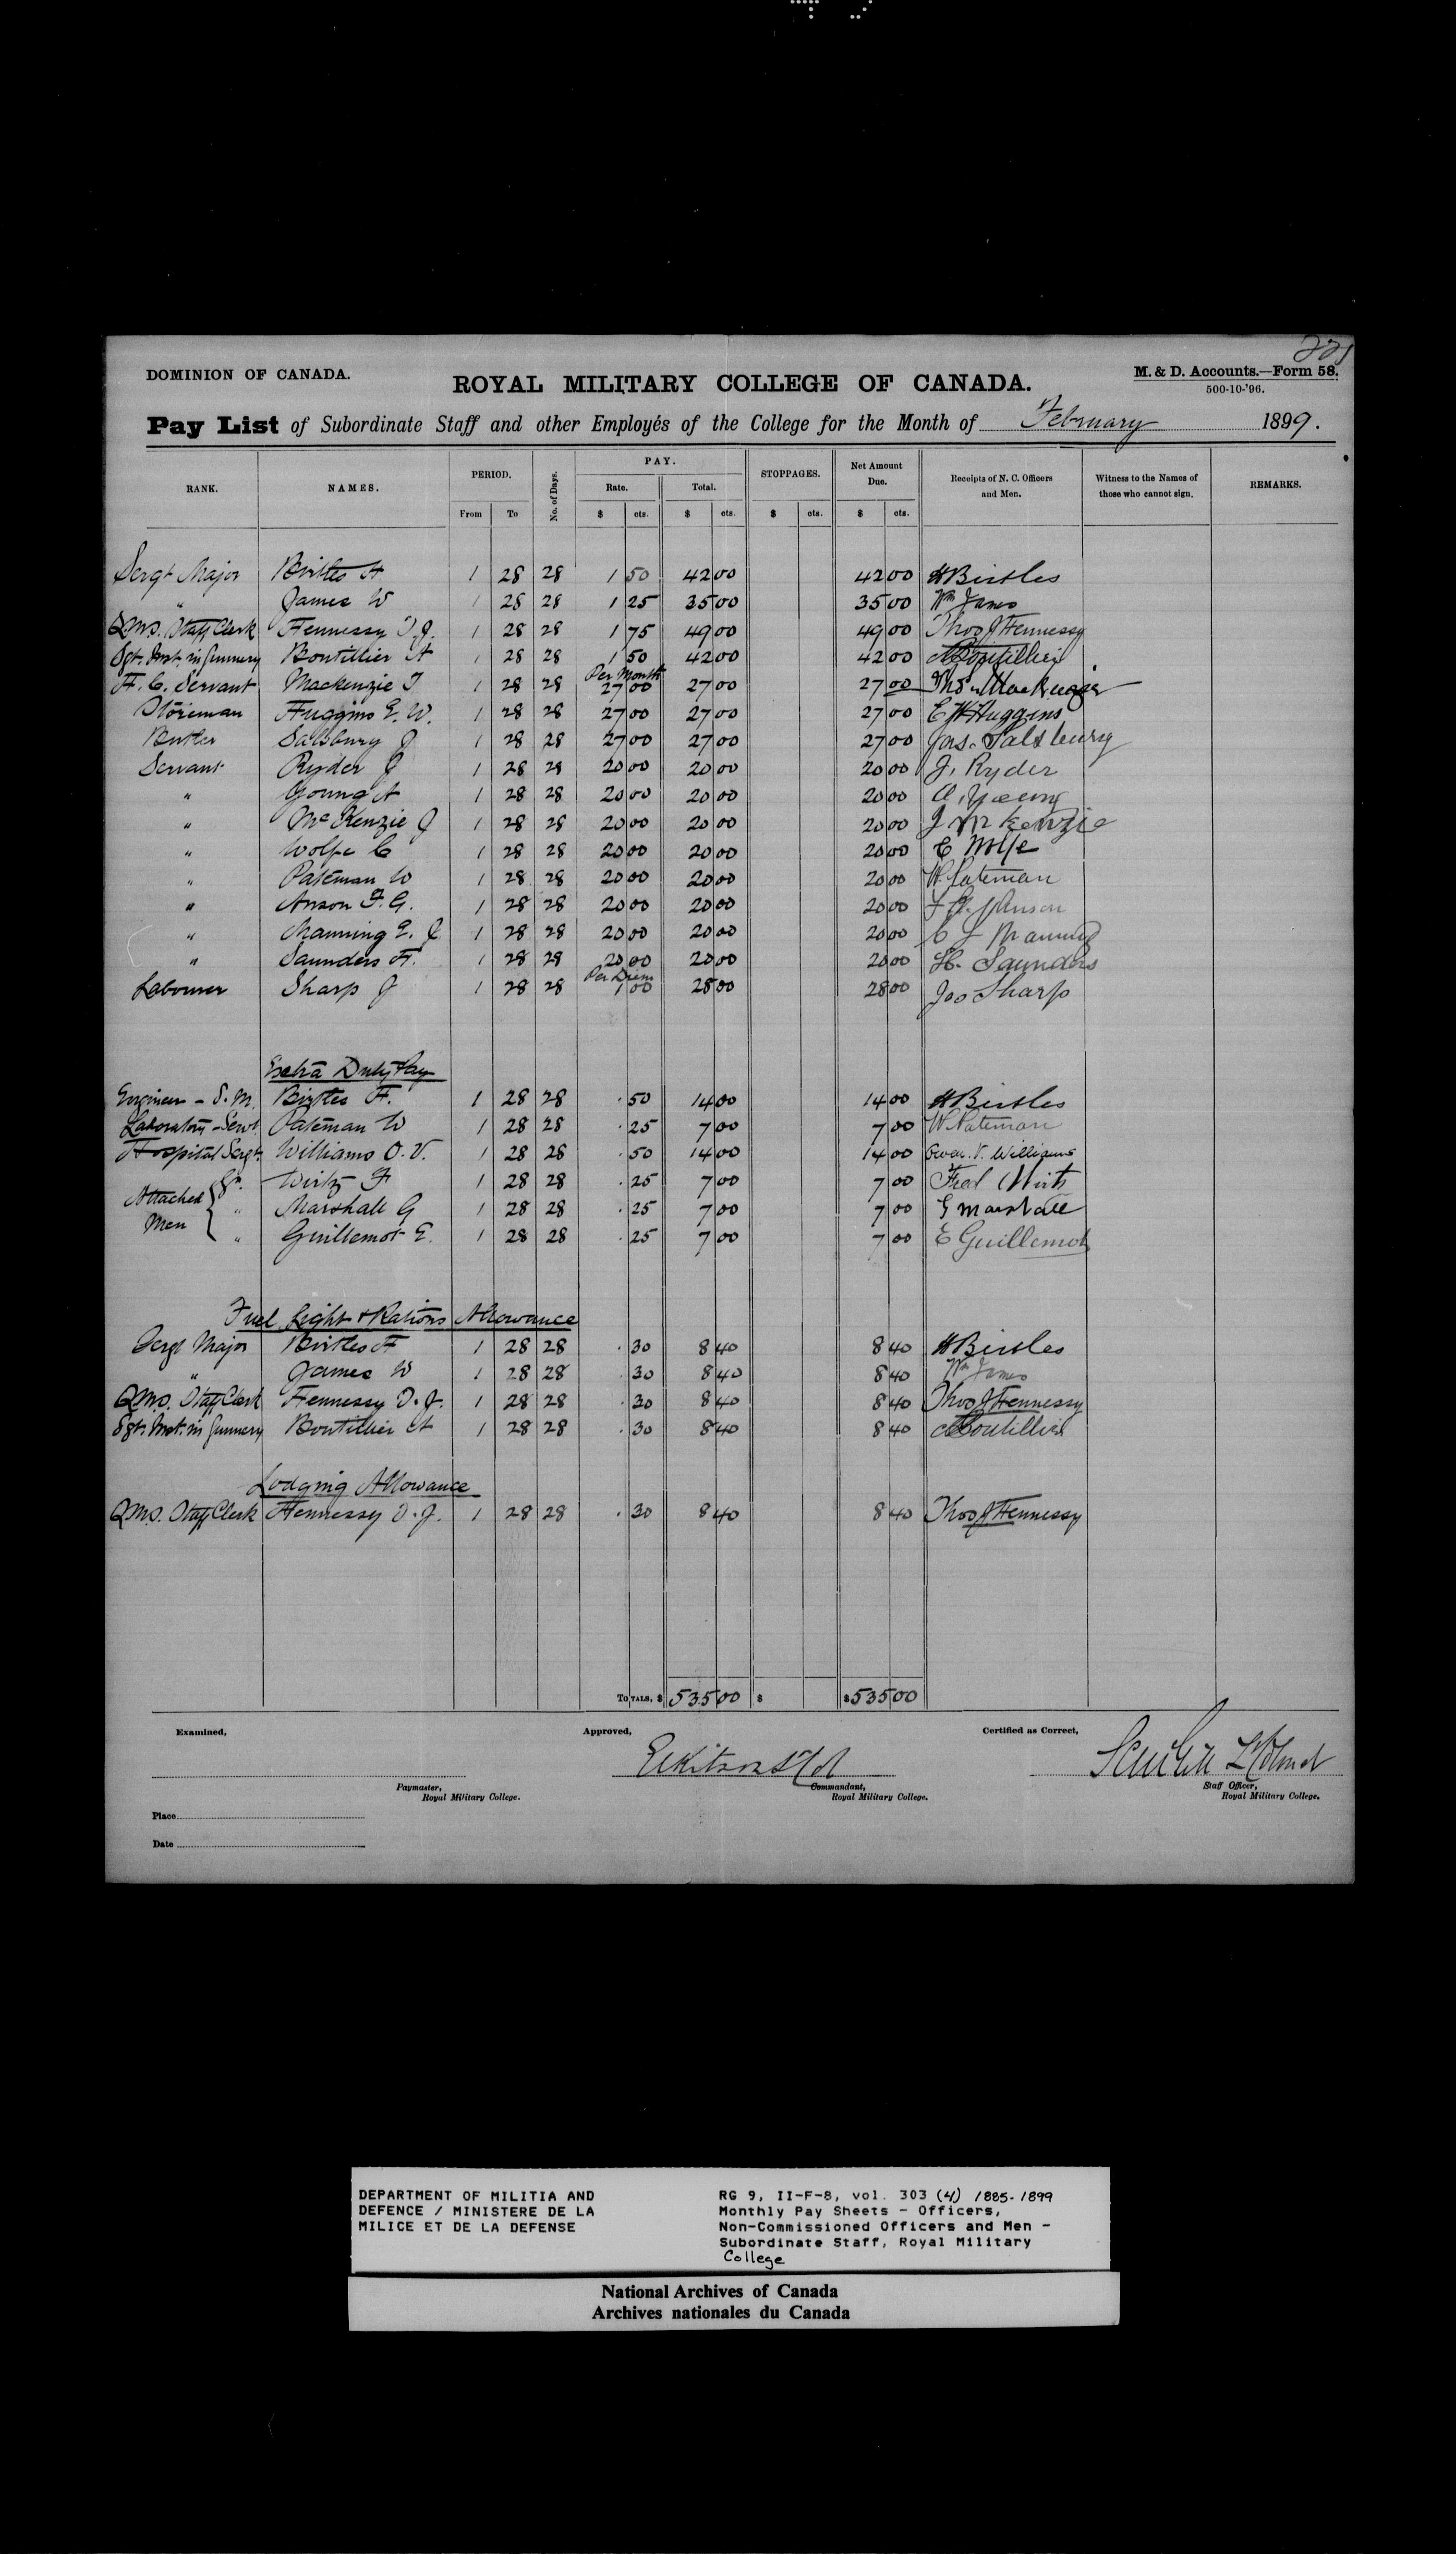 221
DOMINION OF CANADA.
M. & D. Accounts.—Form 58.
500-10-'96.
ROYAL MILITARY COLLEGE OF CANADA.
Pay List of Subordinate Staff and other Employés of the College for the Month of February 1899.
RANK. NAMES. PERIOD. No. of Days. PAY. STOPPAGES. Net Amount Due. Receipts of N. C. Officers and Men. Witness to the Names of those who cannot sign. REMARKS.
Rate. Total.
From To $ cts. $ cts. $ cts. $ cts.
Sergt Major Birtles H 1 28 28 1 50 42 00 42 00 H Birtles
" James W 1 28 28 1 25 35 00 35 00 Wm James
QMS. Staff Clerk Hennessy T. J. 1 28 28 1 75 49 00 49 00 Thos J Hennessy
Sgt. Inst. in Gunnery Boutillier A 1 28 28 1 50 42 00 42 00 A Boutillier
Per Month
H. C. Servant Mackenzie T 1 28 28 27 00 27 00 27 00 Thos Mackenzie
Storeman Huggins E. W. 1 28 28 27 00 27 00 27 00 E W Huggins
Butler Salsbury J 1 28 28 27 00 27 00 27 00 Jas. Salsbury
Servant Ryder J 1 28 28 20 00 20 00 20 00 J. Ryder
" Young A 1 28 28 20 00 20 00 20 00 A. Young
" McKenzie J 1 28 28 20 00 20 00 20 00 J McKenzie
" Wolfe C 1 28 28 20 00 20 00 20 00 C Wolfe
" Pateman W 1 28 28 20 00 20 00 20 00 W. Pateman
" Anson F. G. 1 28 28 20 00 20 00 20 00 F G. Anson
" Manning E. J 1 28 28 20 00 20 00 20 00 E J Manning
" Saunders H. 1 28 28 20 00 20 00 20 00 H. Saunders
Per Diem
Labourer Sharp J 1 28 28 1 00 28 00 28 00 Jos Sharp
Extra Duty Pay
Engineer - S. M. Birtles H. 1 28 28 . 50 14 00 14 00 H Birtles
Laboratory - Servt Pateman W 1 28 28 . 25 7 00 7 00 W Pateman
Hospital Sergt. Williams O. V. 1 28 28 . 50 14 00 14 00 Owen. V. Williams
Attached Men { Gr. Wirtz F 1 28 28 . 25 7 00 7 00 Fred Wirtz
" Marshall G 1 28 28 . 25 7 00 7 00 G Marshall
" Guillemot E. 1 28 28 . 25 7 00 7 00 E Guillemot
Fuel, Light & Rations Allowance
Sergt Major Birtles H 1 28 28 . 30 8 40 8 40 H Birtles
" James W 1 28 28 . 30 8 40 8 40 Wm James
QMS. Staff Clerk Hennessy T. J. 1 28 28 . 30 8 40 8 40 Thos J Hennessy
Sgt. Inst. in Gunnery Boutillier A 1 28 28 . 30 8 40 8 40 A Boutillier
Lodging Allowance
QMS. Staff Clerk Hennessy T. J. 1 28 28 . 30 8 40 8 40 Thos J Hennessy
TOTALS, $ 535 00 $ $ 535 00
Examined, Approved, Certified as Correct,
Paymaster, Royal Military College.
Commandant, Royal Military College.
Staff Officer, Royal Military College.
Place
Date
DEPARTMENT OF MILITIA AND
DEFENCE / MINISTERE DE LA
MILICE ET DE LA DEFENSE
RG 9, II-F-8, vol. 303 (4) 1885-1899
Monthly Pay Sheets - Officers,
Non-Commissioned Officers and Men -
Subordinate Staff, Royal Military
College
National Archives of Canada
Archives nationales du Canada